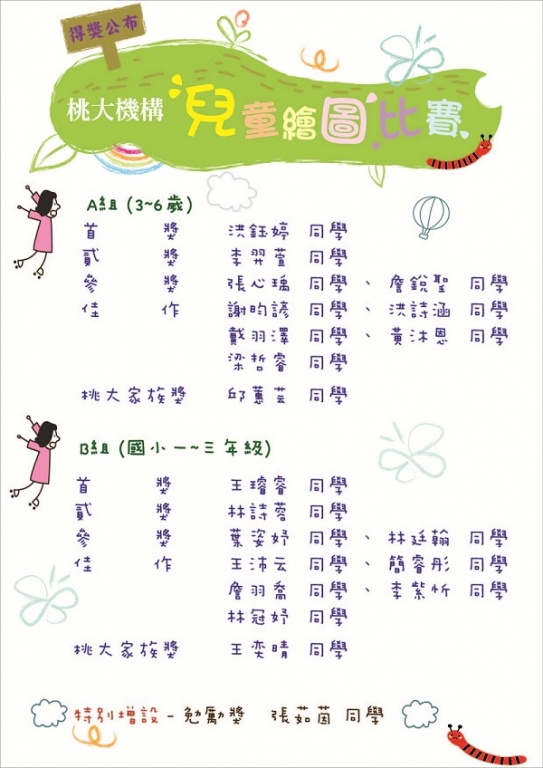 得獎公布
桃大機構 兒童繪圖比賽
A組 (3~6歲)
首獎 洪鈺婷 同學
貳獎 李羿萱 同學
參獎 張心瑀 同學、詹銳聖 同學
佳作 謝昀諺 同學、洪詩涵 同學
戴羽澤 同學、黃沐恩 同學
梁哲睿 同學
桃大家族獎 邱蕙芸 同學
B組 (國小一~三年級)
首獎 王璿睿 同學
貳獎 林詩蓉 同學
參獎 葉姿妤 同學、林廷翰 同學
佳作 王沛云 同學、簡睿彤 同學
詹羽喬 同學、李紫忻 同學
林冠妤 同學
桃大家族獎 王奕晴 同學
特別增設-勉勵獎 張茹茵 同學